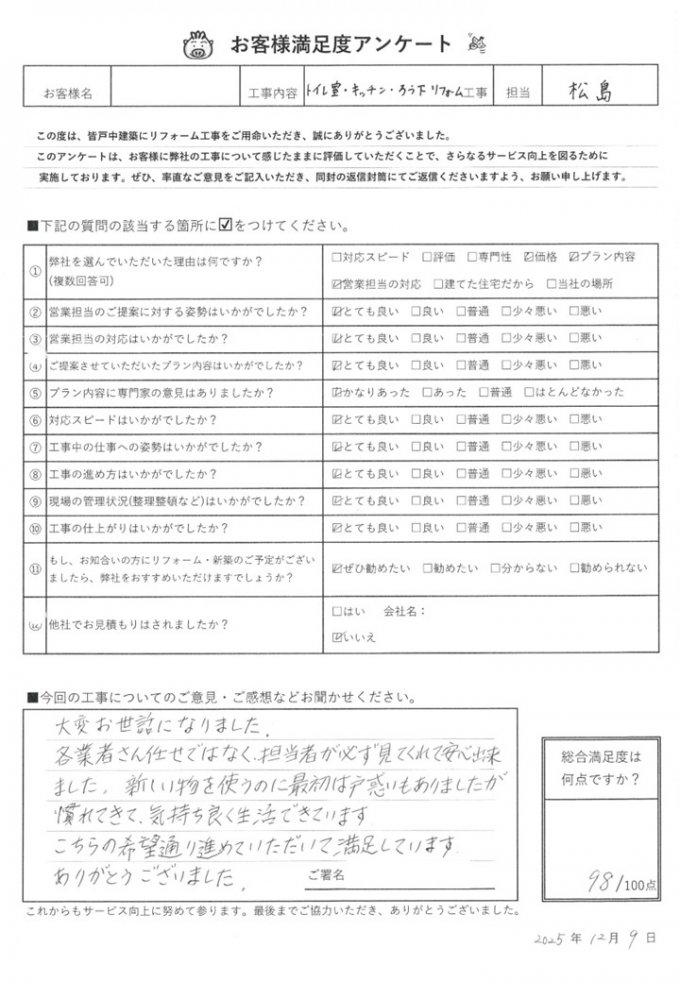 お客様満足度アンケート
お客様名 工事内容 トイレ室・キッチン・ろう下リフォーム工事 担当 松島
この度は、皆戸中建築にリフォーム工事をご用命いただき、誠にありがとうございました。
このアンケートは、お客様に弊社の工事について感じたままに評価していただくことで、さらなるサービス向上を図るために
実施しております。ぜひ、率直なご意見をご記入いただき、同封の返信封筒にてご返信くださいますよう、お願い申し上げます。
■下記の質問の該当する箇所に☑をつけてください。
① 弊社を選んでいただいた理由は何ですか？
(複数回答可)
□対応スピード □評価 □専門性 ☑価格 ☑プラン内容
☑営業担当の対応 □建てた住宅だから □当社の場所
② 営業担当のご提案に対する姿勢はいかがでしたか？ ☑とても良い □良い □普通 □少々悪い □悪い
③ 営業担当の対応はいかがでしたか？ ☑とても良い □良い □普通 □少々悪い □悪い
④ ご提案させていただいたプラン内容はいかがでしたか？ ☑とても良い □良い □普通 □少々悪い □悪い
⑤ プラン内容に専門家の意見はありましたか？ ☑かなりあった □あった □普通 □ほとんどなかった
⑥ 対応スピードはいかがでしたか？ ☑とても良い □良い □普通 □少々悪い □悪い
⑦ 工事中の仕事への姿勢はいかがでしたか？ ☑とても良い □良い □普通 □少々悪い □悪い
⑧ 工事の進め方はいかがでしたか？ ☑とても良い □良い □普通 □少々悪い □悪い
⑨ 現場の管理状況(整理整頓など)はいかがでしたか？ ☑とても良い □良い □普通 □少々悪い □悪い
⑩ 工事の仕上がりはいかがでしたか？ ☑とても良い □良い □普通 □少々悪い □悪い
⑪ もし、お知合いの方にリフォーム・新築のご予定がござい
ましたら、弊社をおすすめいただけますでしょうか？
☑ぜひ勧めたい □勧めたい □分からない □勧められない
⑫ 他社でお見積もりはされましたか？
□はい 会社名：
☑いいえ
■今回の工事についてのご意見・ご感想などお聞かせください。
大変お世話になりました。
各業者さん任せではなく、担当者が必ず見てくれて安心出来
ました。新しい物を使うのに最初は戸惑いもありましたが
慣れてきて、気持ち良く生活できています
こちらの希望通り進めていただいて満足しています
ありがとうございました。
ご署名
総合満足度は
何点ですか？
98/100点
これからもサービス向上に努めて参ります。最後までご協力いただき、ありがとうございました。
2025年12月9日